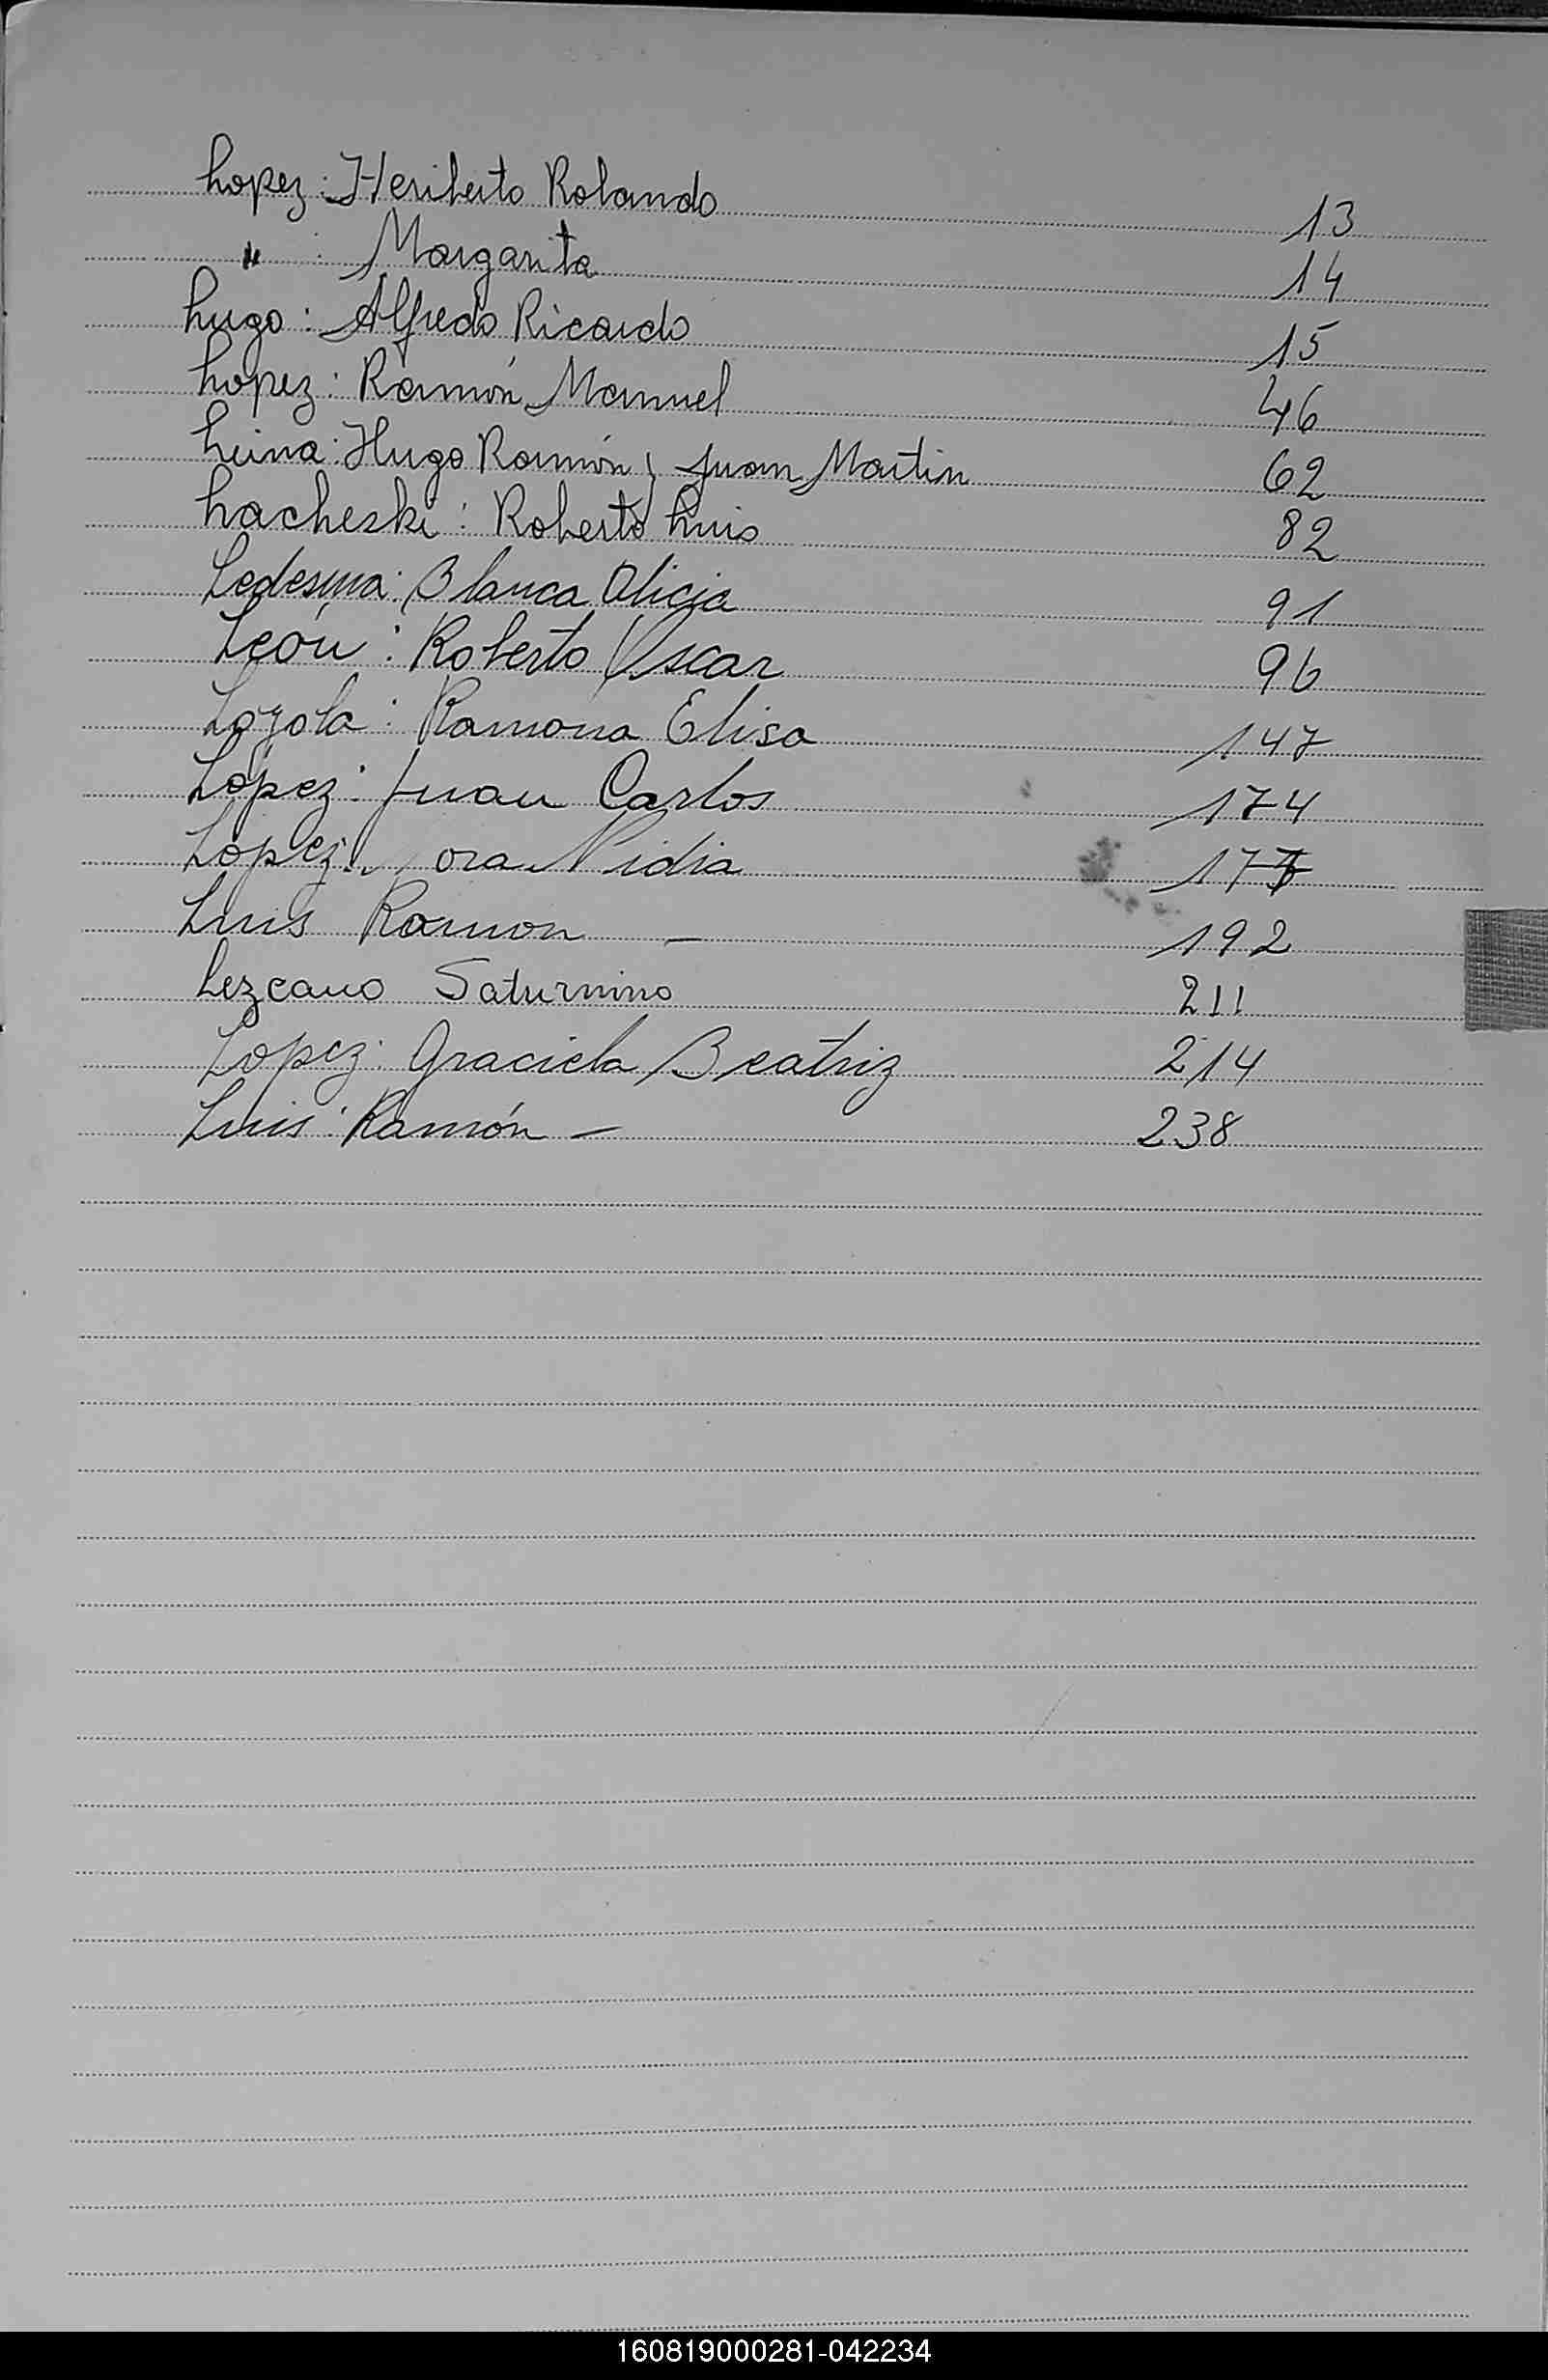 Lopez: Heriberto Rolando 13
" : Margarita 14
Lugo: Alfredo Ricardo 15
Lopez: Ramón Manuel 46
Leiva: Hugo Ramón y Juan Martin 62
Lacheski: Roberto Luis 82
Ledesma: Blanca Alicia 91
León: Roberto Oscar 96
Loyola: Ramona Elisa 147
López: Juan Carlos 174
López: Nora Nidia 177
Luis Ramon — 192
Lezcano Saturnino 211
Lopez: Graciela Beatriz 214
Luis: Ramón — 238
160819000281-042234